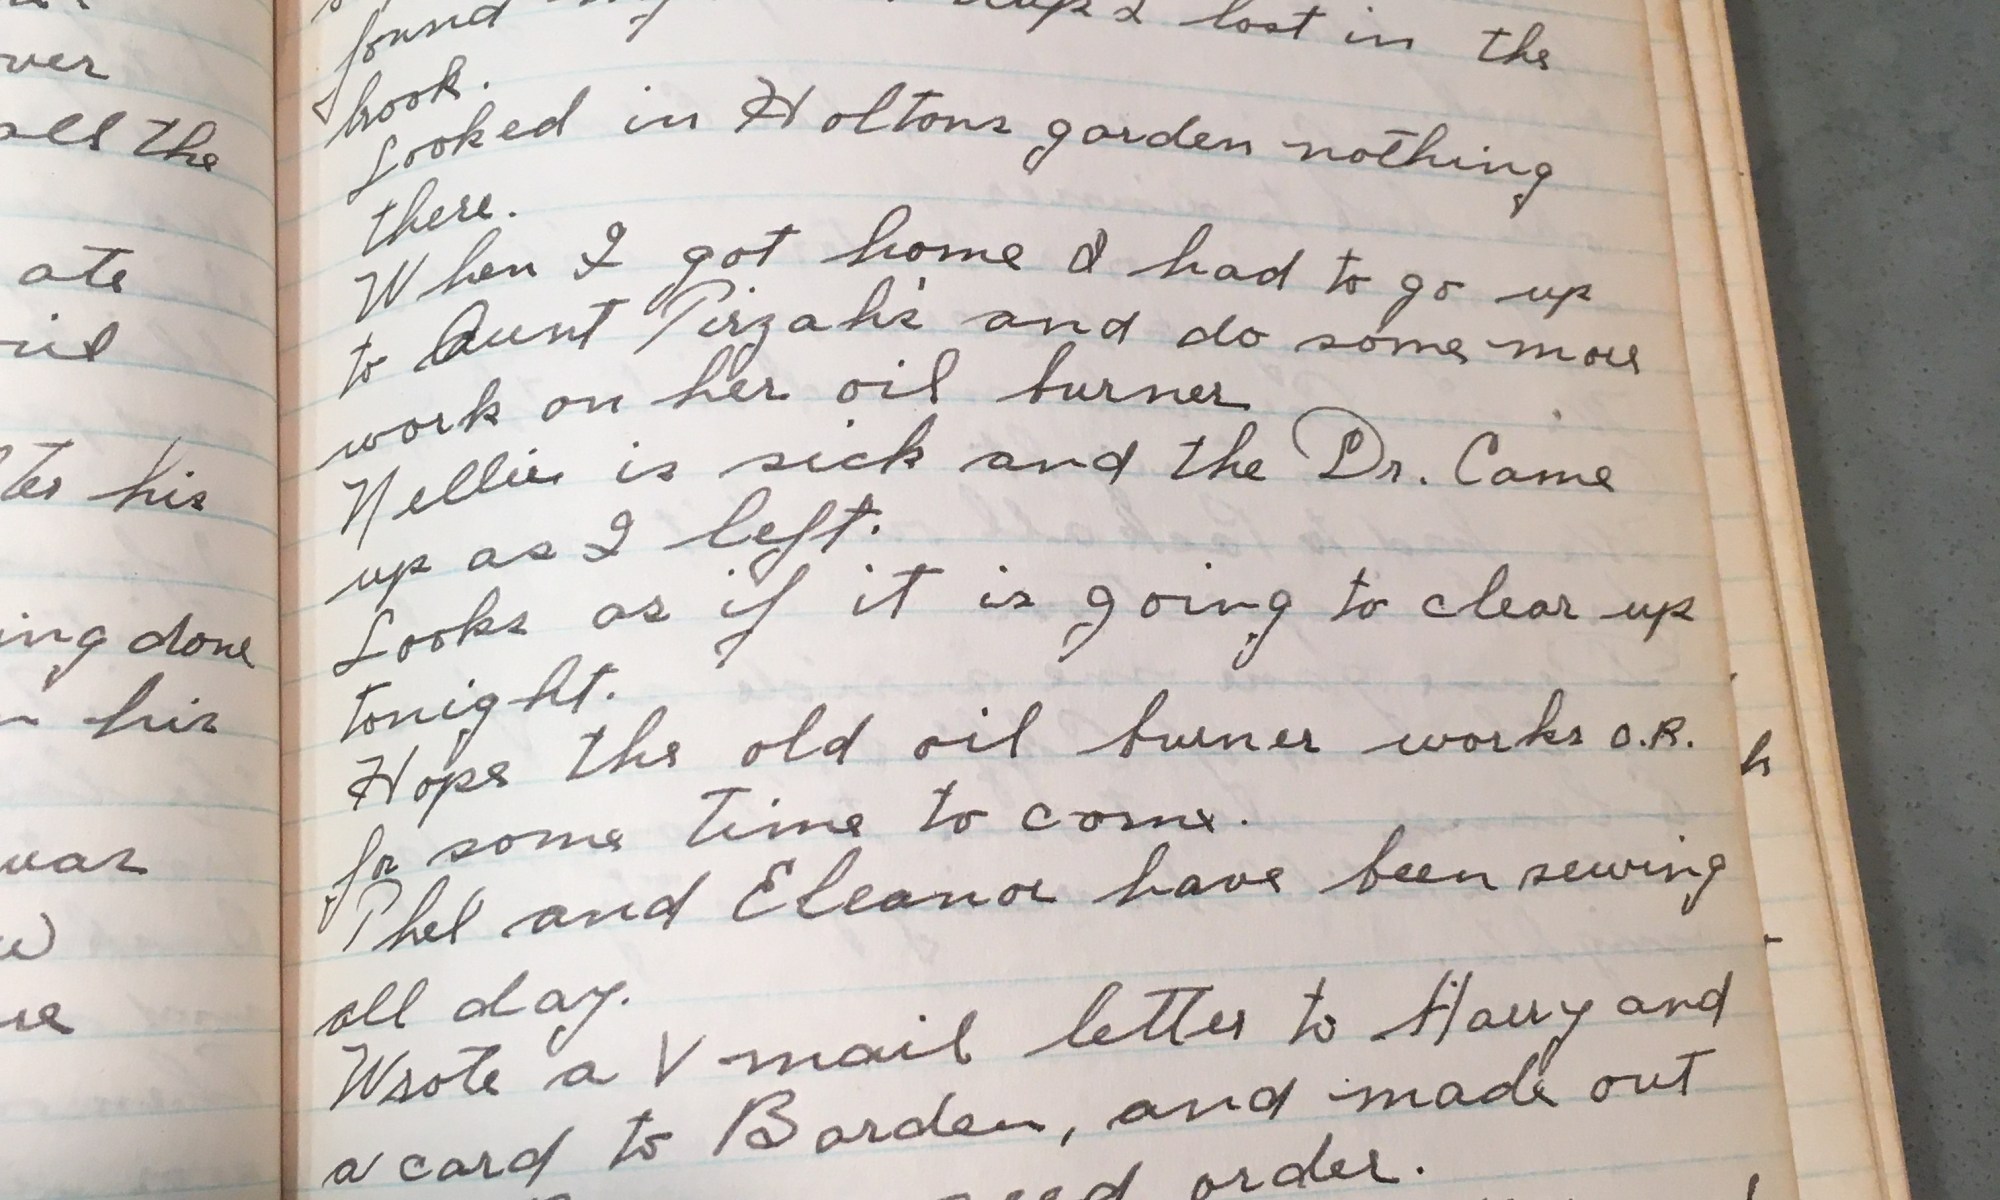 over
all the
ate
his
ing done
his
was
found lost in the
book.
Looked in Holtons garden nothing
there.
When I got home I had to go up
to Aunt Pirzah's and do some more
work on her oil burner
Nellie is sick and the Dr. Came
up as I left.
Looks as if it is going to clear up
tonight.
Hope the old oil burner works O.K.
for some time to come.
Phel and Eleanor have been sewing
all day.
Wrote a V mail letter to Harry and
a card to Barden, and made out
order.